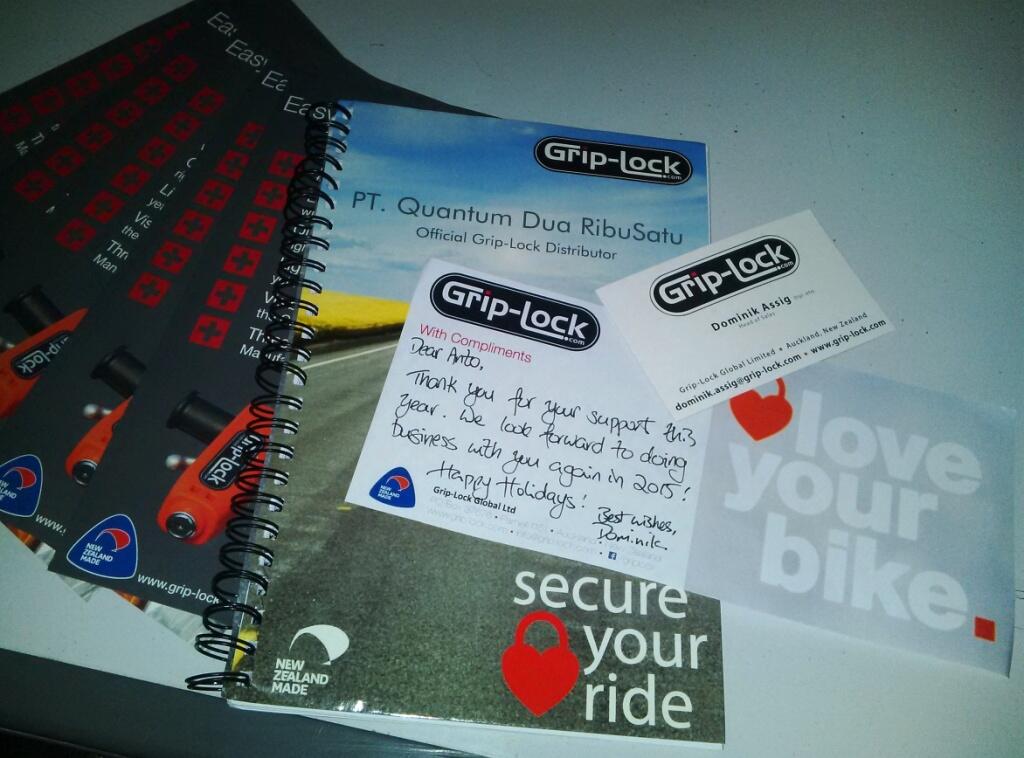 Easy
Easy
Easy
Easy
NEW ZEALAND MADE
www.grip-lock
Grip-Lock
.com
PT. Quantum Dua RibuSatu
Official Grip-Lock Distributor
Grip-Lock
.com
With Compliments
Dear Anto,
Thank you for your support this
year. We look forward to doing
business with you again in 2015!
Happy Holidays!
Best wishes,
Dominik.
NEW
ZEALAND
MADE
Grip-Lock Global Ltd
Grip-Lock
.com
Dominik Assig
Head of Sales
Grip-Lock Global Limited • Auckland, New Zealand
dominik.assig@grip-lock.com • www.grip-lock.com
love
your
bike.
secure
your
ride
NEW
ZEALAND
MADE